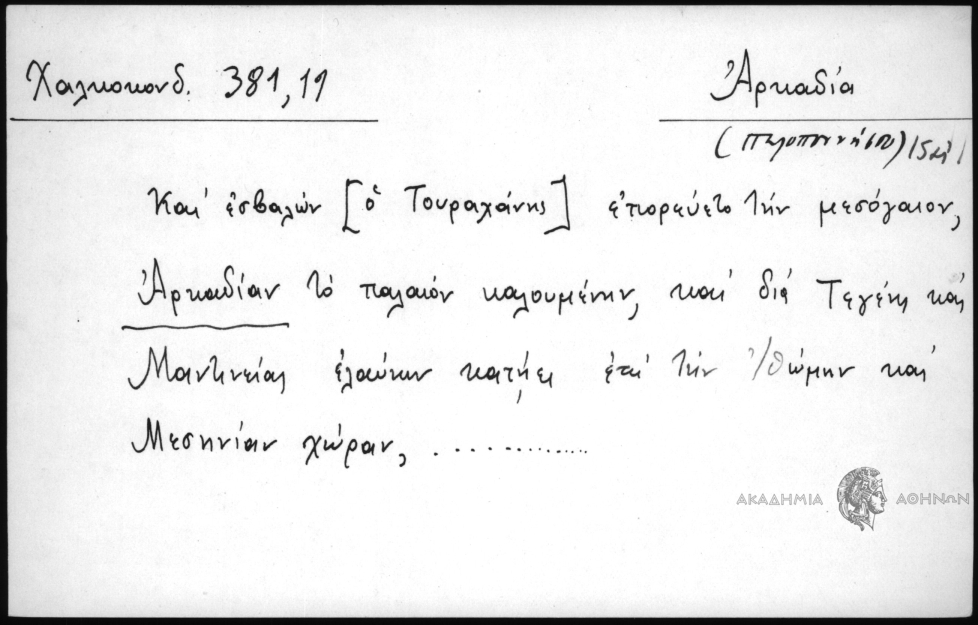 Χαλκοκονδ. 381,11
Ἀρκαδία
(Πελοποννήσου)
Καί ἐσβαλών [ὁ Τουραχάνης] ἐπορεύετο τήν μεσόγαιον,
Ἀρκαδίαν τό παλαιόν καλουμένην, καί διά Τεγέης καί
Μαντινείας ἐλαύνων κατῄει ἐπί τήν Ἰθώμην καί
Μεσηνίαν χώραν, ..............
ΑΚΑΔΗΜΙΑ ΑΘΗΝΩΝ